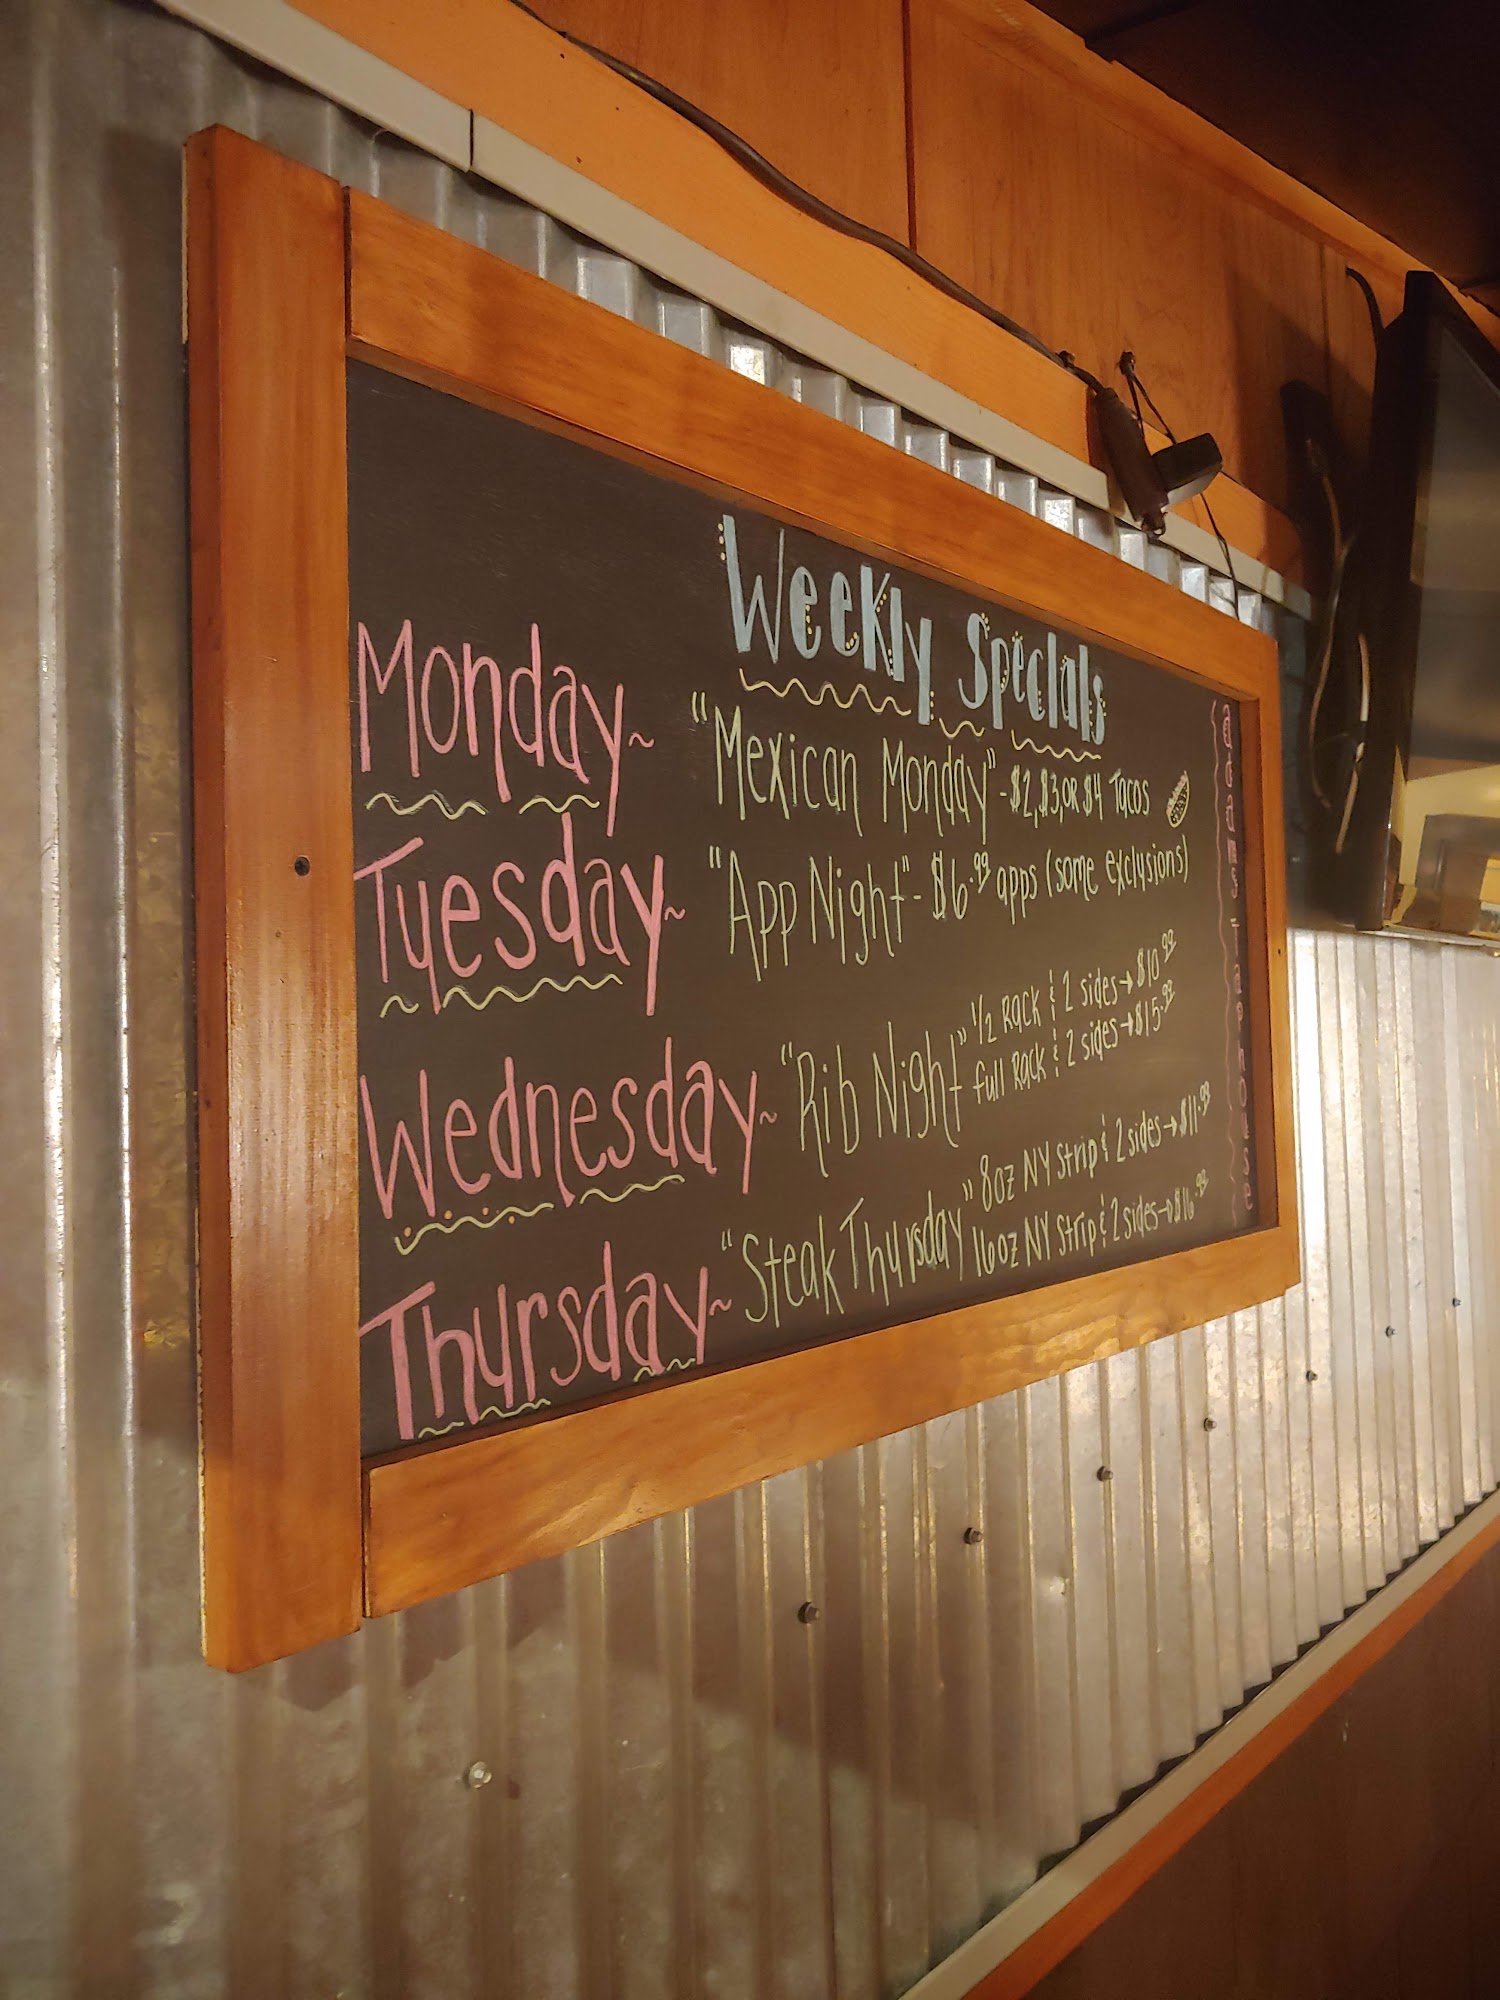 Weekly Specials
Monday~ "Mexican Monday" - $2, $3, OR $4 Tacos
Tuesday~ "App Night" - $6.99 apps (some exclusions)
Wednesday~ "Rib Night" 1/2 Rack & 2 sides→$10.99
full Rack & 2 sides→$15.99
Thursday~ "Steak Thursday" 8oz NY Strip & 2 sides→$11.99
16oz NY Strip & 2 sides→$16.99